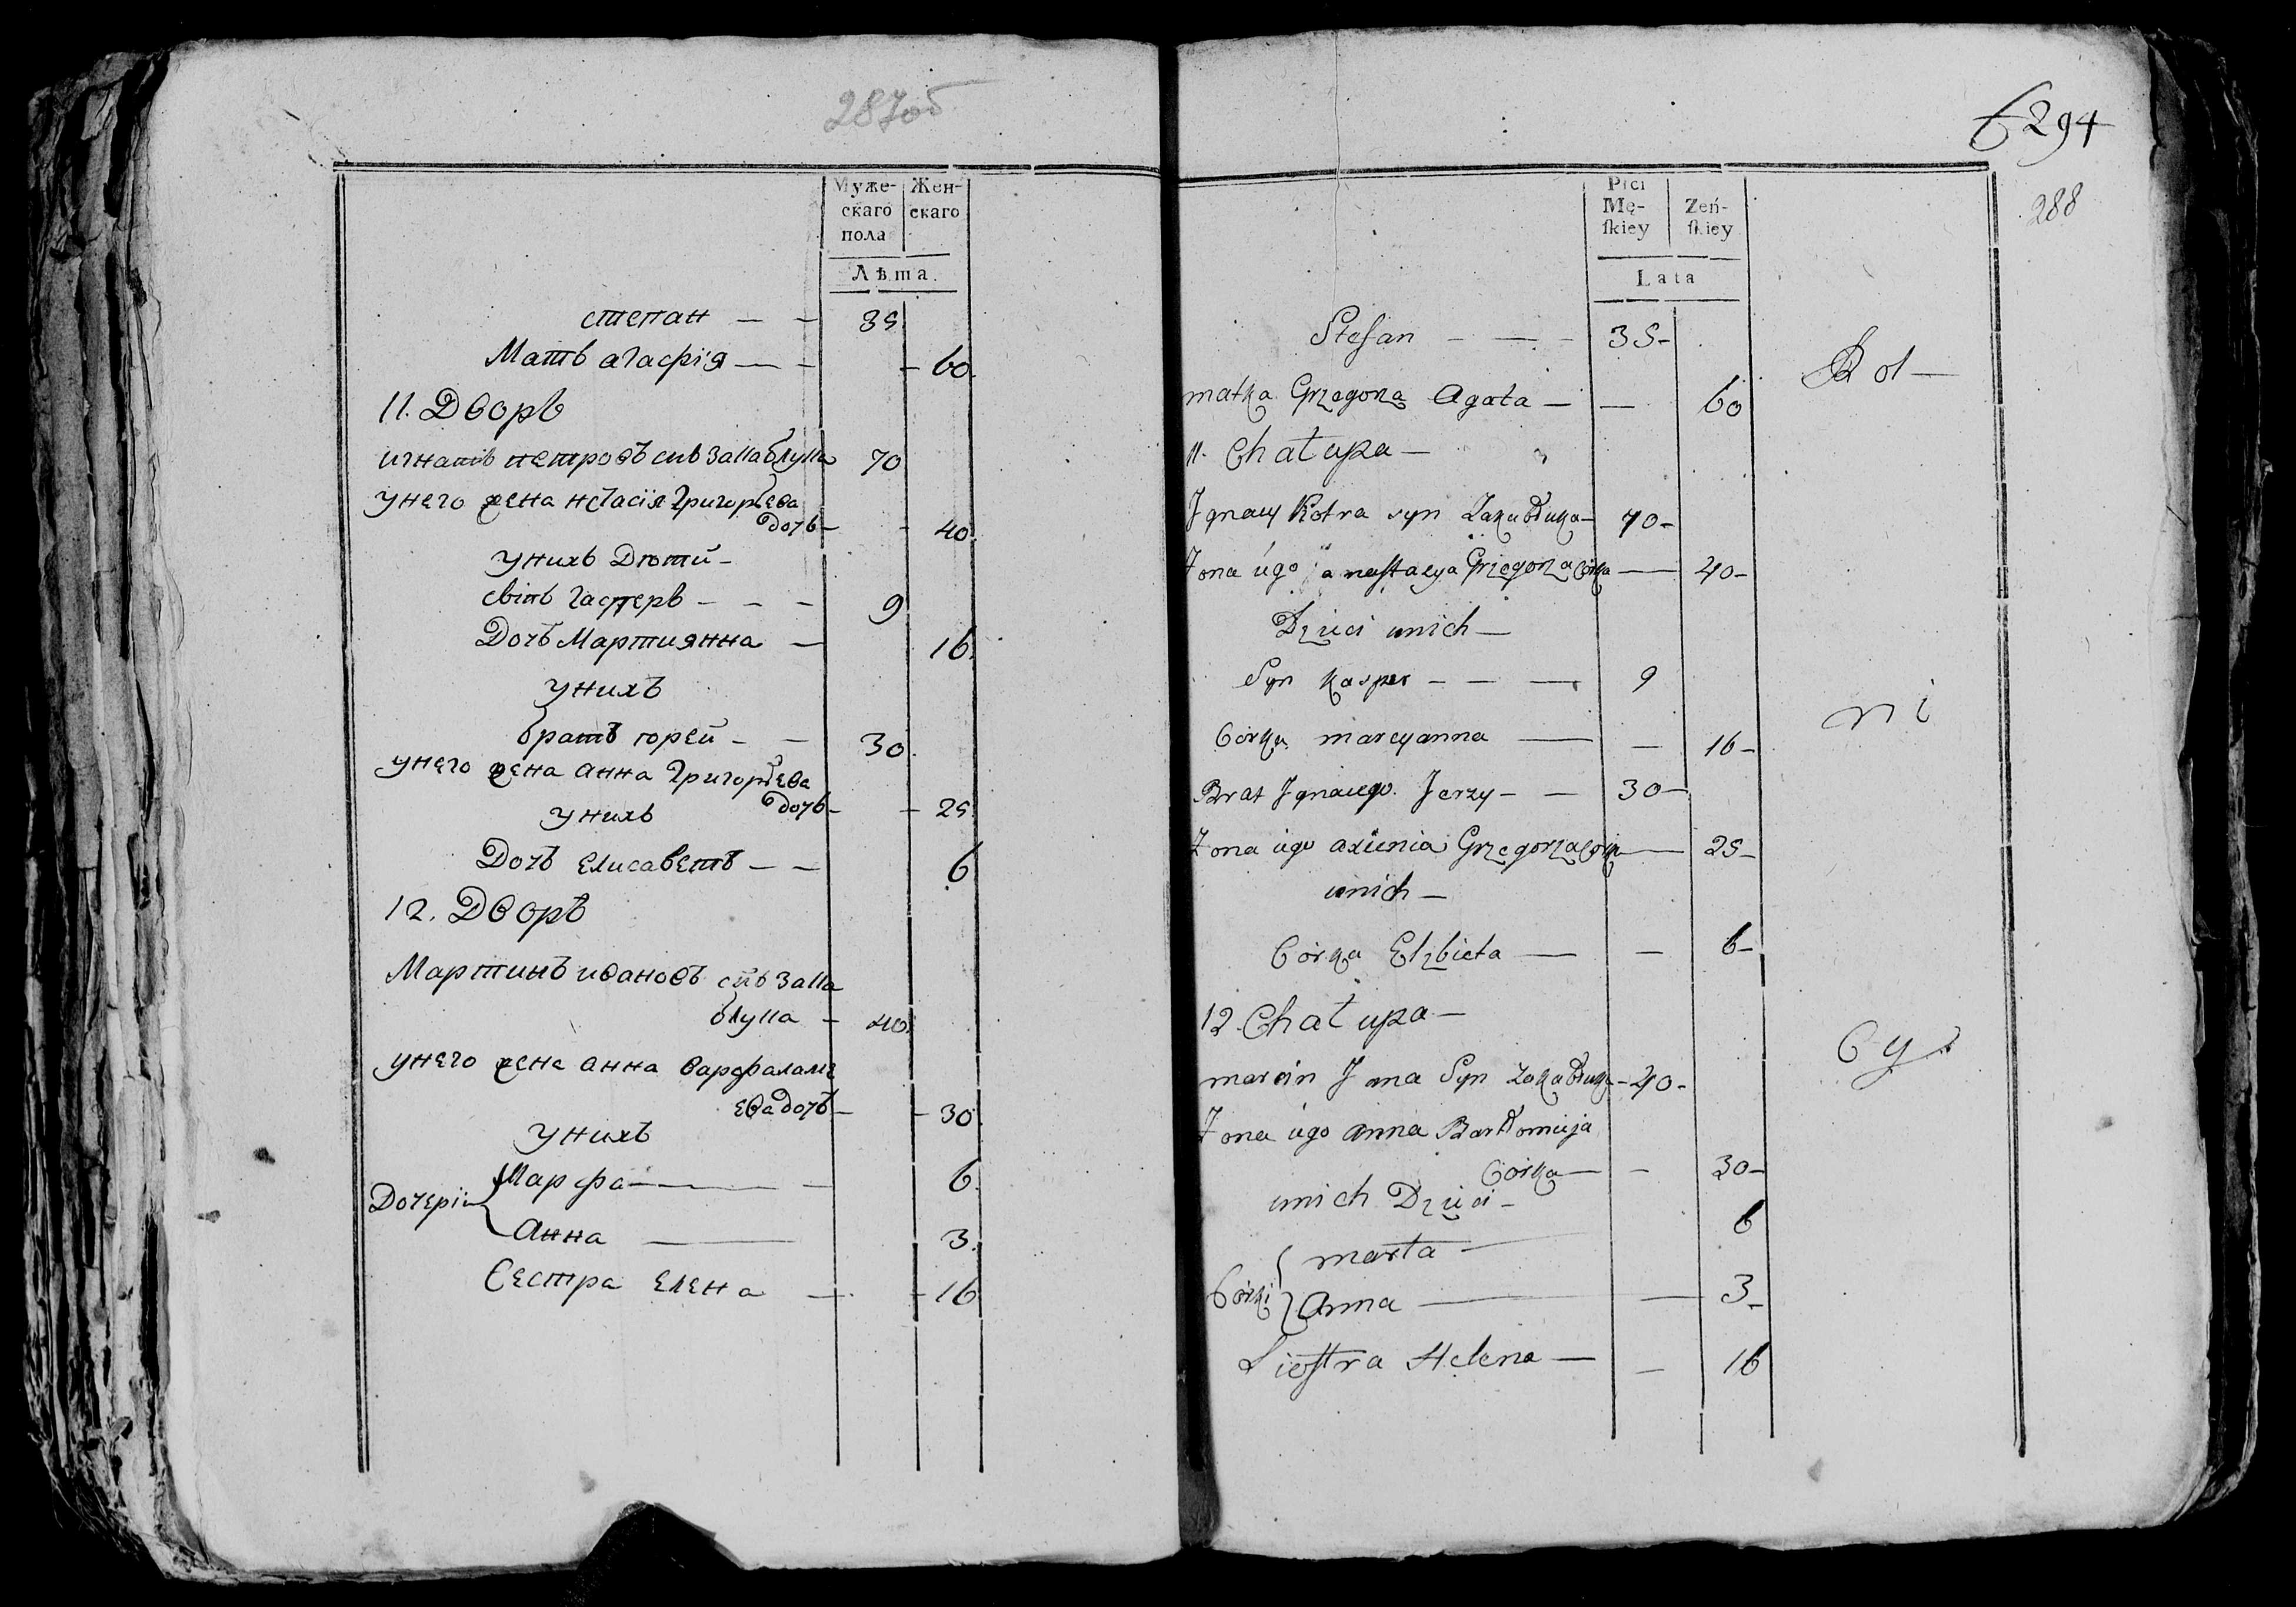 287об
Муже-
скаго
пола
Жен-
скаго
Лѣта.
степан — — 35
Мать агафія — — 60.
11. Дворъ
игнатъ петровъ снъ Заllаблуllа 70
унего жена нстасія Григорьева
дочъ — 40.
унихъ Дѣтй —
свінъ гасперъ — — — 9
Дочъ Мартиянна — 16.
унихъ
братъ юрей — — 30
унего жена анна Григорьева
дочъ — 25
унихъ
Дочъ елисаветъ — — 6
12. Дворъ
Мартинъ ивановъ снъ Заllа
блуllа — 40.
унего жена анна варфаламе
ева дочъ — 30.
унихъ
Дочерй { Марфа — — 6.
Анна — 3.
Сестра елена — 16
6294
288
Płci
Mę-
ſkiey
Zeń-
ſkiey
Lata
Stefan — — — 35 —
matka Grzegorza Agata — — 60
11. Chałupa —
Ignacy Kotra syn Zakabłuka — 70 —
Żona iego anastazya Grzegorza Córka — 40 —
Dzieci unich —
Syn Kasper — — — 9
Córka marcyanna — — 16 —
Brat Ignacego Jerzy — — 30 —
Żona iego axienia Grzegorza Córka — 25 —
unich —
Córka Elzbieta — — 6 —
12. Chałupa —
marcin Jana Syn Zakabłuka — 40 —
Żona iego anna Bartłomieja
Córka — — 30 —
unich Dzieci —
Córki { marta — 6
Anna — — 3 —
Siostra Helena — — 16
Rol —
ni
cy.